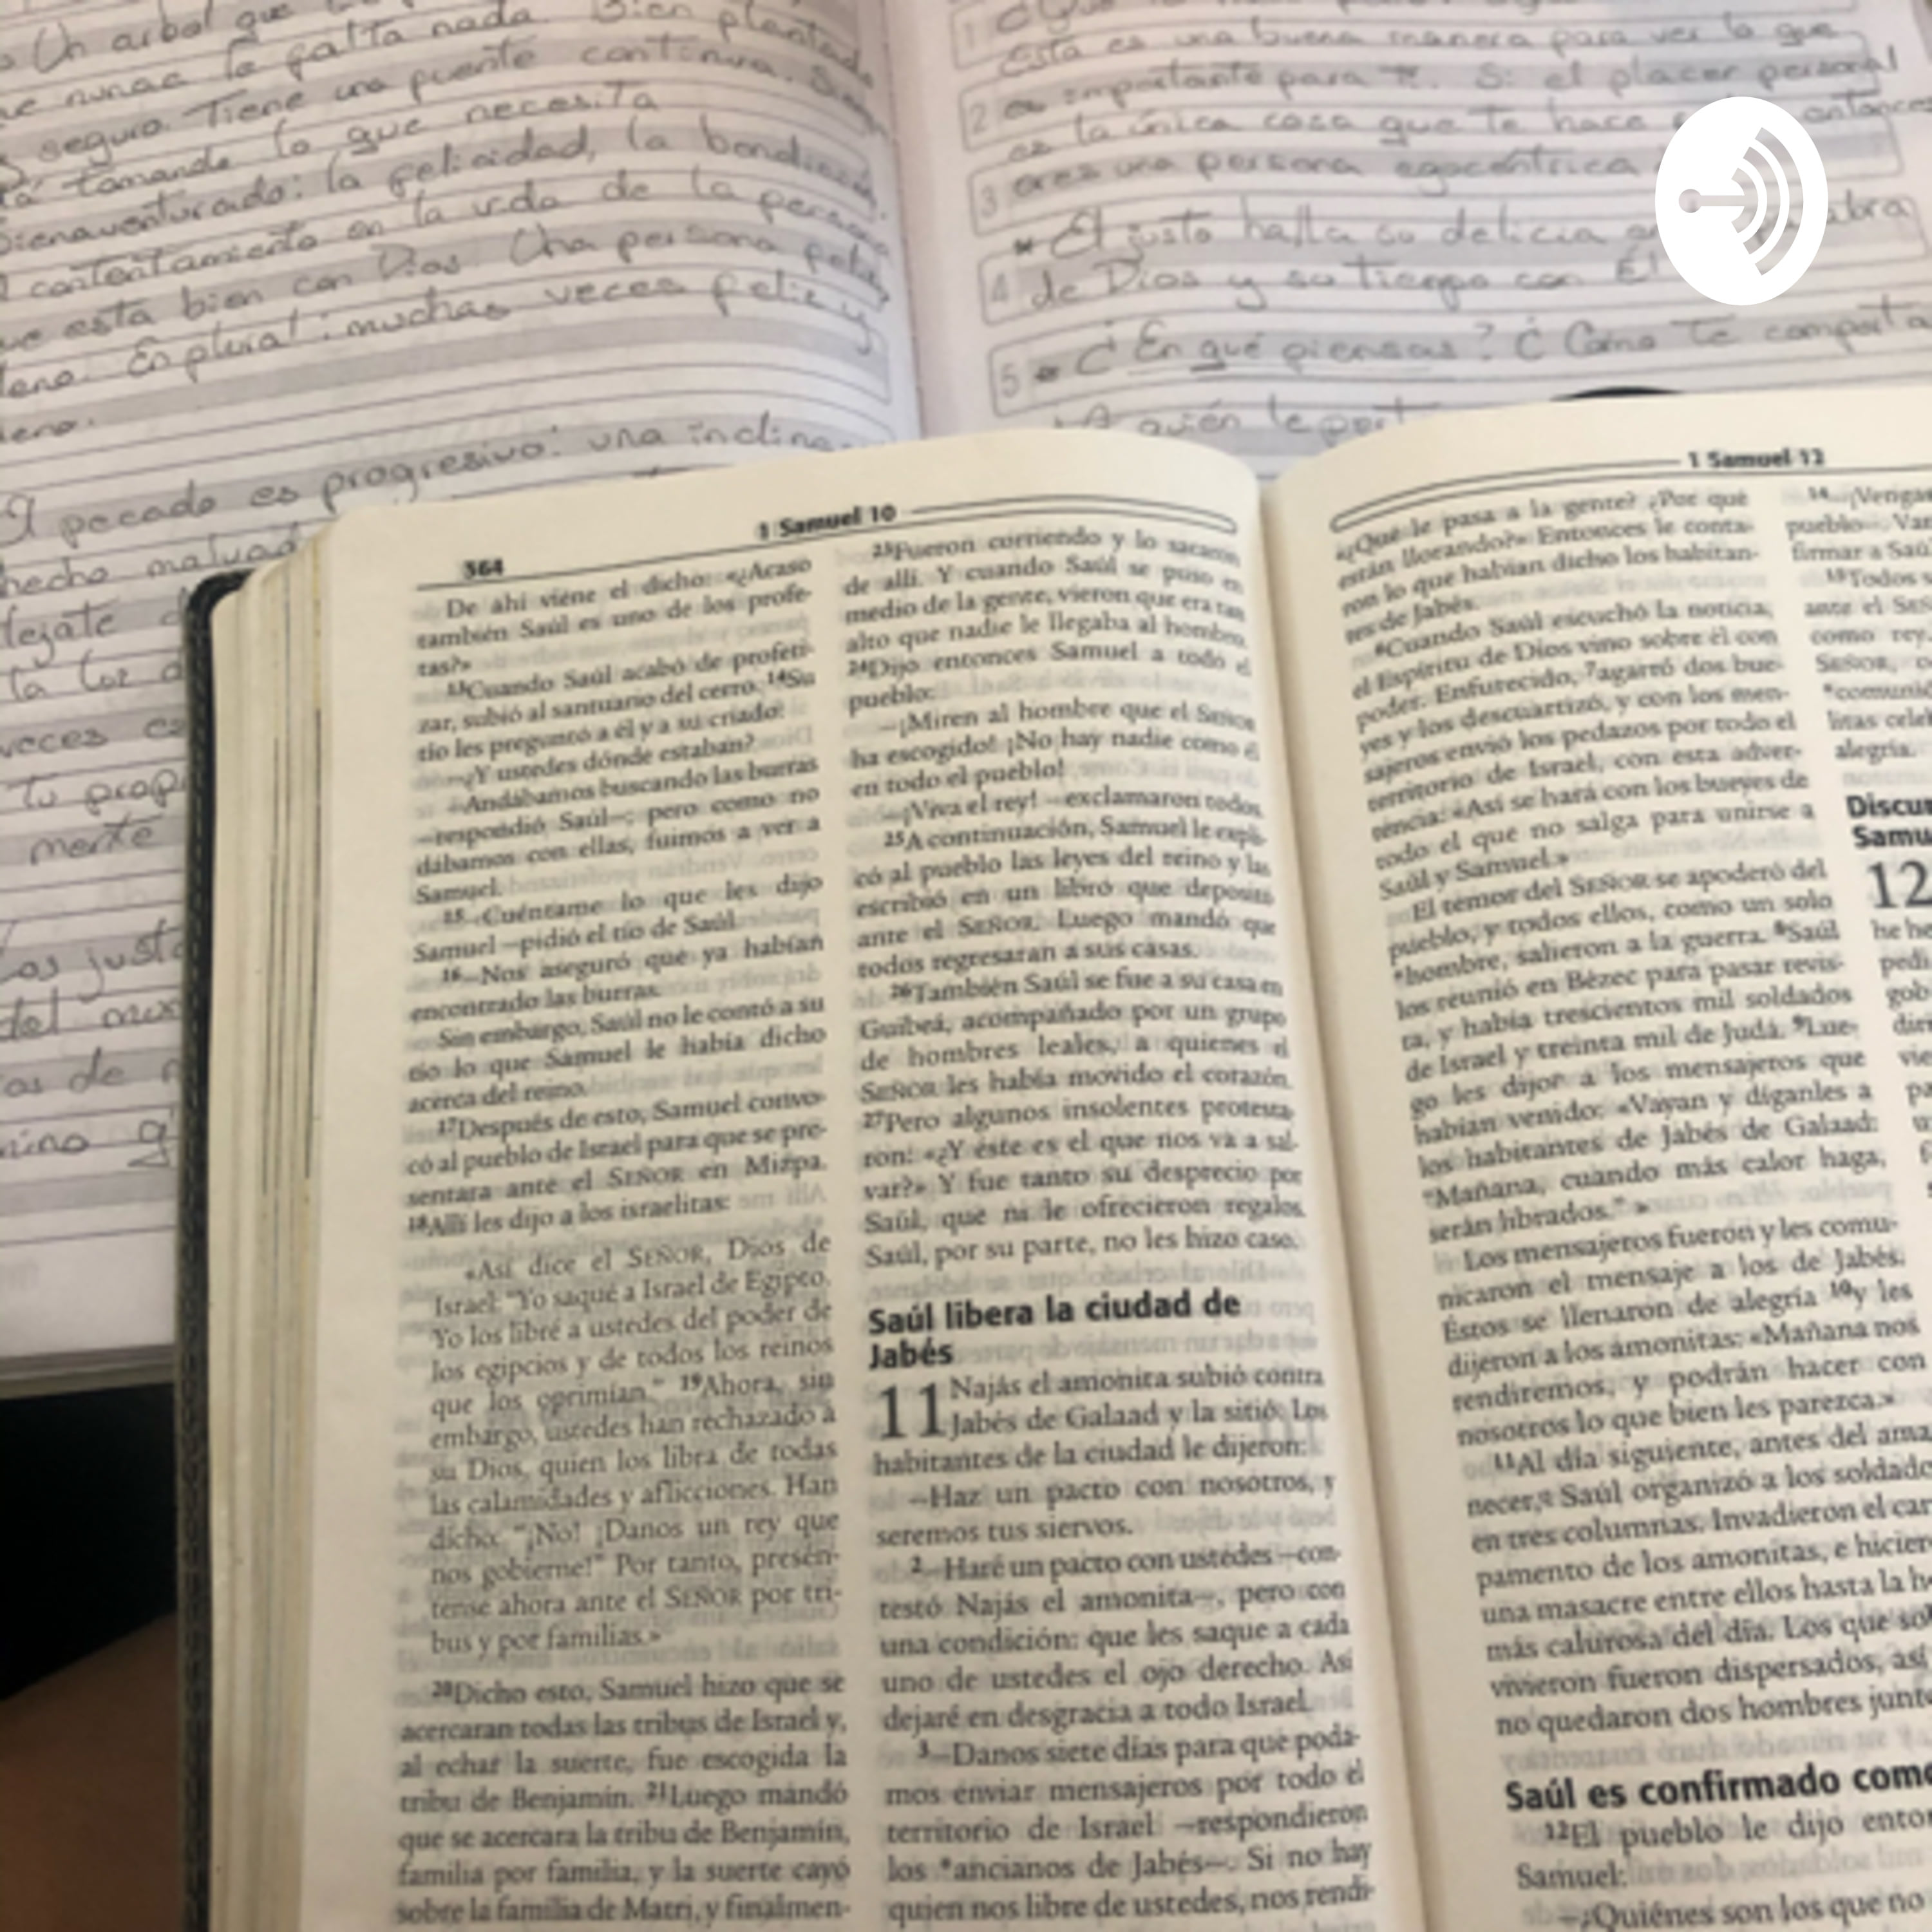 Un arbol que
nunca le falta nada. Bien plantado
seguro. Tiene una fuente continua.
tomando lo que necesita
Bienaventurado: la felicidad, la
contentamiento en la vida de la persona
que esta bien con Dios. Una persona
En plural: muchas veces feliz y
pecado es progresivo: una inclina-
hecho
la luz
veces
Tu
mente
justo
del
de
1
Esta es una buena manera para ver lo que
2 es importante para ti. Si el placer personal
es la única cosa que te hace entonces
3 eres una persona egocéntrica
* El justo halla su delicia
4 de Dios y su tiempo con Él
5 ¿En qué piensas? ¿Cómo te
¿A quién le
364
1 Samuel 10
De ahí viene el dicho: «¿Acaso
también Saúl es uno de los profe-
tas?»
13Cuando Saúl acabó de profeti-
zar, subió al santuario del cerro. 14Su
tío les preguntó a él y a su criado:
—¿Y ustedes dónde estaban?
—Andábamos buscando las burras
—respondió Saúl—; pero como no
dábamos con ellas, fuimos a ver a
Samuel.
15—Cuéntame lo que les dijo
Samuel —pidió el tío de Saúl.
16—Nos aseguró que ya habían
encontrado las burras.
Sin embargo, Saúl no le contó a su
tío lo que Samuel le había dicho
acerca del reino.
17Después de esto, Samuel convo-
có al pueblo de Israel para que se pre-
sentara ante el SEÑOR en Mizpa.
18Allí les dijo a los israelitas:
«Así dice el SEÑOR, Dios de
Israel: "Yo saqué a Israel de Egipto.
Yo los libré a ustedes del poder de
los egipcios y de todos los reinos
que los oprimían." 19Ahora, sin
embargo, ustedes han rechazado a
su Dios, quien los libra de todas
las calamidades y aflicciones. Han
dicho: "¡No! ¡Danos un rey que
nos gobierne!" Por tanto, presén-
tense ahora ante el SEÑOR por tri-
bus y por familias.»
20Dicho esto, Samuel hizo que se
acercaran todas las tribus de Israel y,
al echar la suerte, fue escogida la
tribu de Benjamín. 21Luego mandó
que se acercara la tribu de Benjamín,
familia por familia, y la suerte cayó
sobre la familia de Matri, y finalmen-
23Fueron corriendo y lo sacaron
de allí. Y cuando Saúl se puso en
medio de la gente, vieron que era tan
alto que nadie le llegaba al hombro.
24Dijo entonces Samuel a todo el
pueblo:
—¡Miren al hombre que el SEÑOR
ha escogido! ¡No hay nadie como él
en todo el pueblo!
—¡Viva el rey! —exclamaron todos.
25A continuación, Samuel le expli-
có al pueblo las leyes del reino y las
escribió en un libro que depositó
ante el SEÑOR. Luego mandó que
todos regresaran a sus casas.
26También Saúl se fue a su casa en
Guibeá, acompañado por un grupo
de hombres leales, a quienes el
SEÑOR les había movido el corazón.
27Pero algunos insolentes protesta-
ron: «¿Y éste es el que nos va a sal-
var?» Y fue tanto su desprecio por
Saúl, que ni le ofrecieron regalos.
Saúl, por su parte, no les hizo caso.
Saúl libera la ciudad de
Jabés
11 Najás el amonita subió contra
Jabés de Galaad y la sitió. Los
habitantes de la ciudad le dijeron:
—Haz un pacto con nosotros, y
seremos tus siervos.
2—Haré un pacto con ustedes —con-
testó Najás el amonita—, pero con
una condición: que les saque a cada
uno de ustedes el ojo derecho. Así
dejaré en desgracia a todo Israel.
3—Danos siete días para que poda-
mos enviar mensajeros por todo el
territorio de Israel —respondieron
los *ancianos de Jabés—. Si no hay
quien nos libre de ustedes, nos rendi-
1 Samuel 12
«¿Qué le pasa a la gente? ¿Por qué
están llorando?» Entonces le conta-
ron lo que habían dicho los habitan-
tes de Jabés.
6Cuando Saúl escuchó la noticia,
el Espíritu de Dios vino sobre él con
poder. Enfurecido, 7agarró dos bue-
yes y los descuartizó, y con los men-
sajeros envió los pedazos por todo el
territorio de Israel, con esta adver-
tencia: «Así se hará con los bueyes de
todo el que no salga para unirse a
Saúl y Samuel.»
El temor del SEÑOR se apoderó del
pueblo, y todos ellos, como un solo
*hombre, salieron a la guerra. 8Saúl
los reunió en Bézec para pasar revis-
ta, y había trescientos mil soldados
de Israel y treinta mil de Judá. 9Lue-
go les dijo a los mensajeros que
habían venido: «Vayan y díganles a
los habitantes de Jabés de Galaad:
"Mañana, cuando más calor haga,
serán librados." »
Los mensajeros fueron y les comu-
nicaron el mensaje a los de Jabés.
Éstos se llenaron de alegría 10y les
dijeron a los amonitas: «Mañana nos
rendiremos, y podrán hacer con
nosotros lo que bien les parezca.»
11Al día siguiente, antes del ama
necer, Saúl organizó a los soldado
en tres columnas. Invadieron el cam
pamento de los amonitas, e hicier
una masacre entre ellos hasta la h
más calurosa del día. Los que so
vivieron fueron dispersados, así
no quedaron dos hombres junt
Saúl es confirmado com
12El pueblo le dijo ento
Samuel:
—¿Quiénes son los que no
14—¡Vengan
pueblo—. Va
firmar a Saú
15Todos
ante el
como rey
SEÑOR,
*comuni
litas cele
alegría.
Discu
Samu
12
he he
pedi
gob
diri
vie
pa